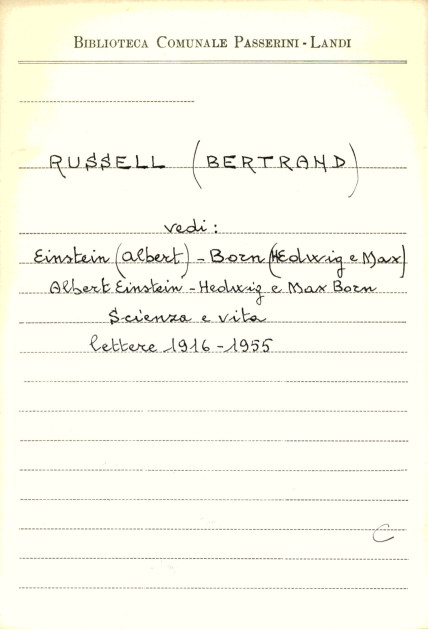 BIBLIOTECA COMUNALE PASSERINI - LANDI
RUSSELL (BERTRAND)
vedi:
Einstein (Albert) - Born (HEdwig e Max)
Albert Einstein - Hedwig e Max Born
Scienza e vita
lettere 1916-1955
C